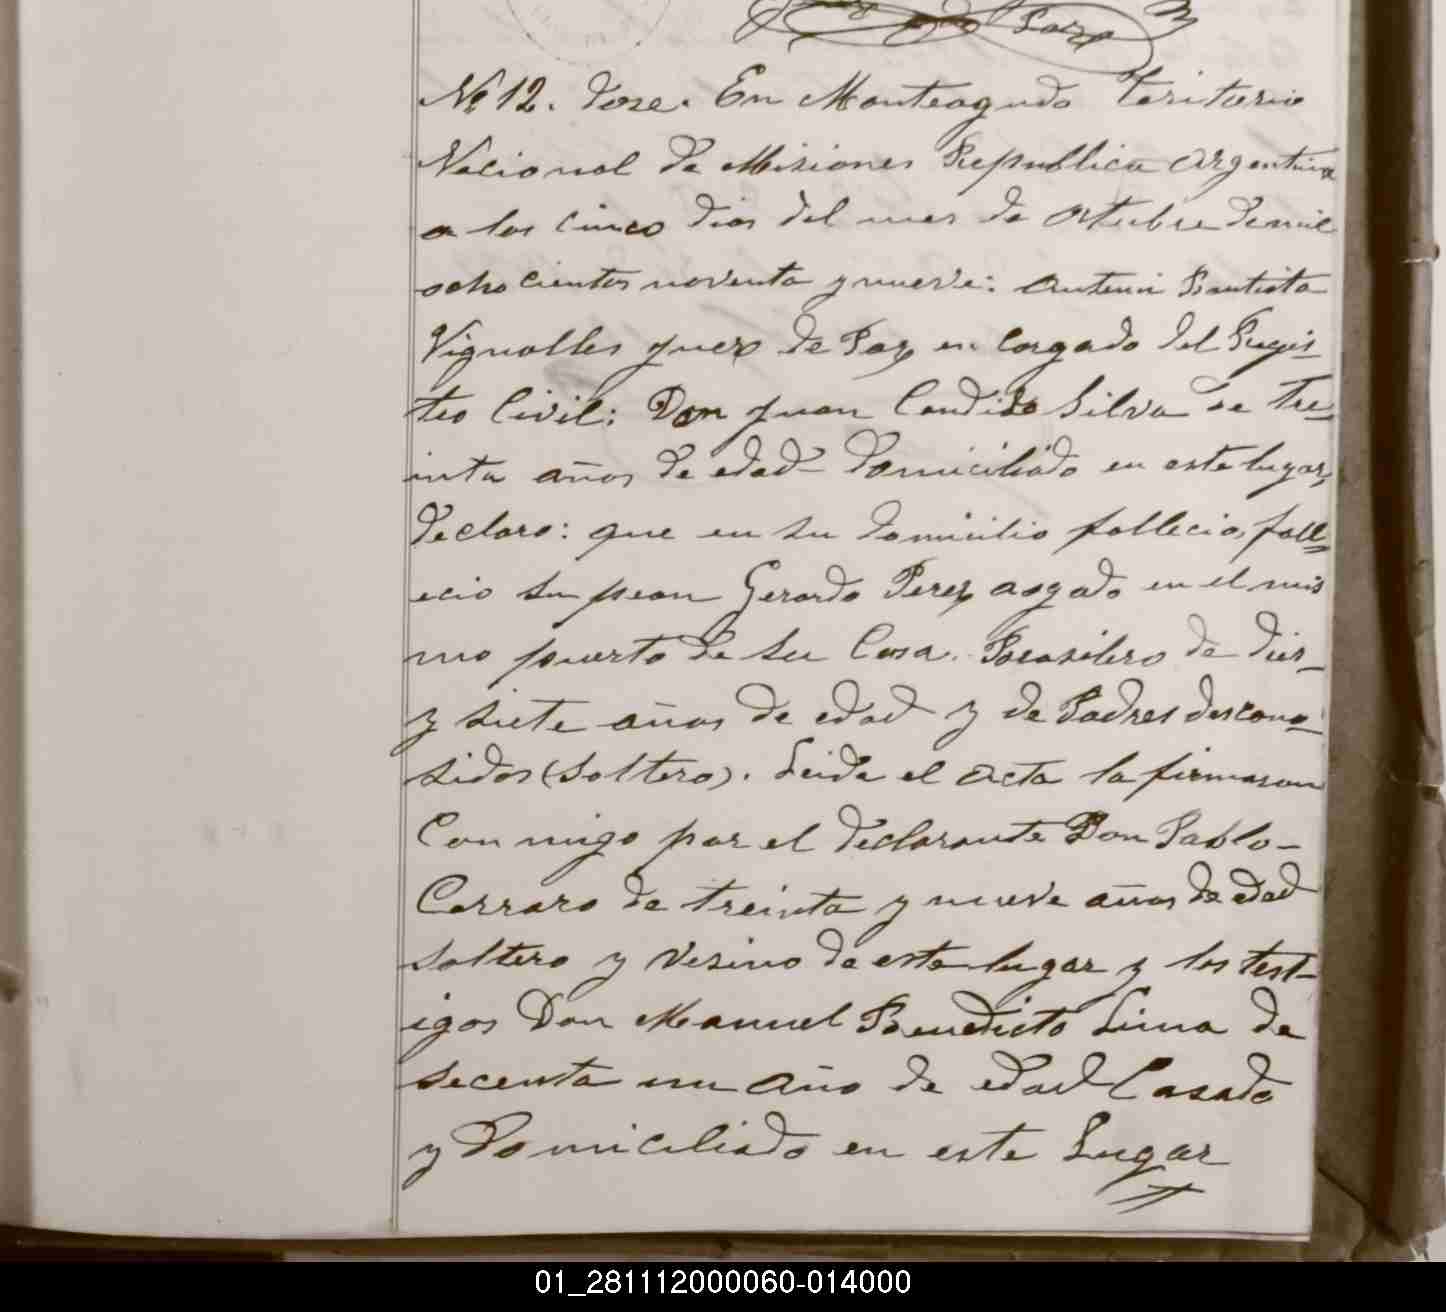 Paz
Nº 12. Dose. En Monteagudo Teritorio
Nacional de Misiones Republica Argentina
a los cinco dias del mes de Octubre de mil
ocho cientos noventa y nueve: Antemi Bautista
Vignolles Juez de Paz, en cargado del Regis_
tro Civil: Don Juan Candido Silva de tre_
inta años de edad domiciliado en este lugar,
declaro: que en su domicilio fallecio, fall=
ecio su peon Gerardo Perez aogado en el mis
mo puerto de su Casa. Brasilero de dies_
y siete años de edad y de Padres descono_
sidos (soltero). Leida el acta la firmaron
Con migo por el declarante Don Pablo-
Carraro de treinta y nueve años de edad
soltero y vesino de este lugar y los test-
igos Don Manuel Benedicto Lima de
secenta un año de edad Casado
y Domiciliado en este Lugar
01_281112000060-014000